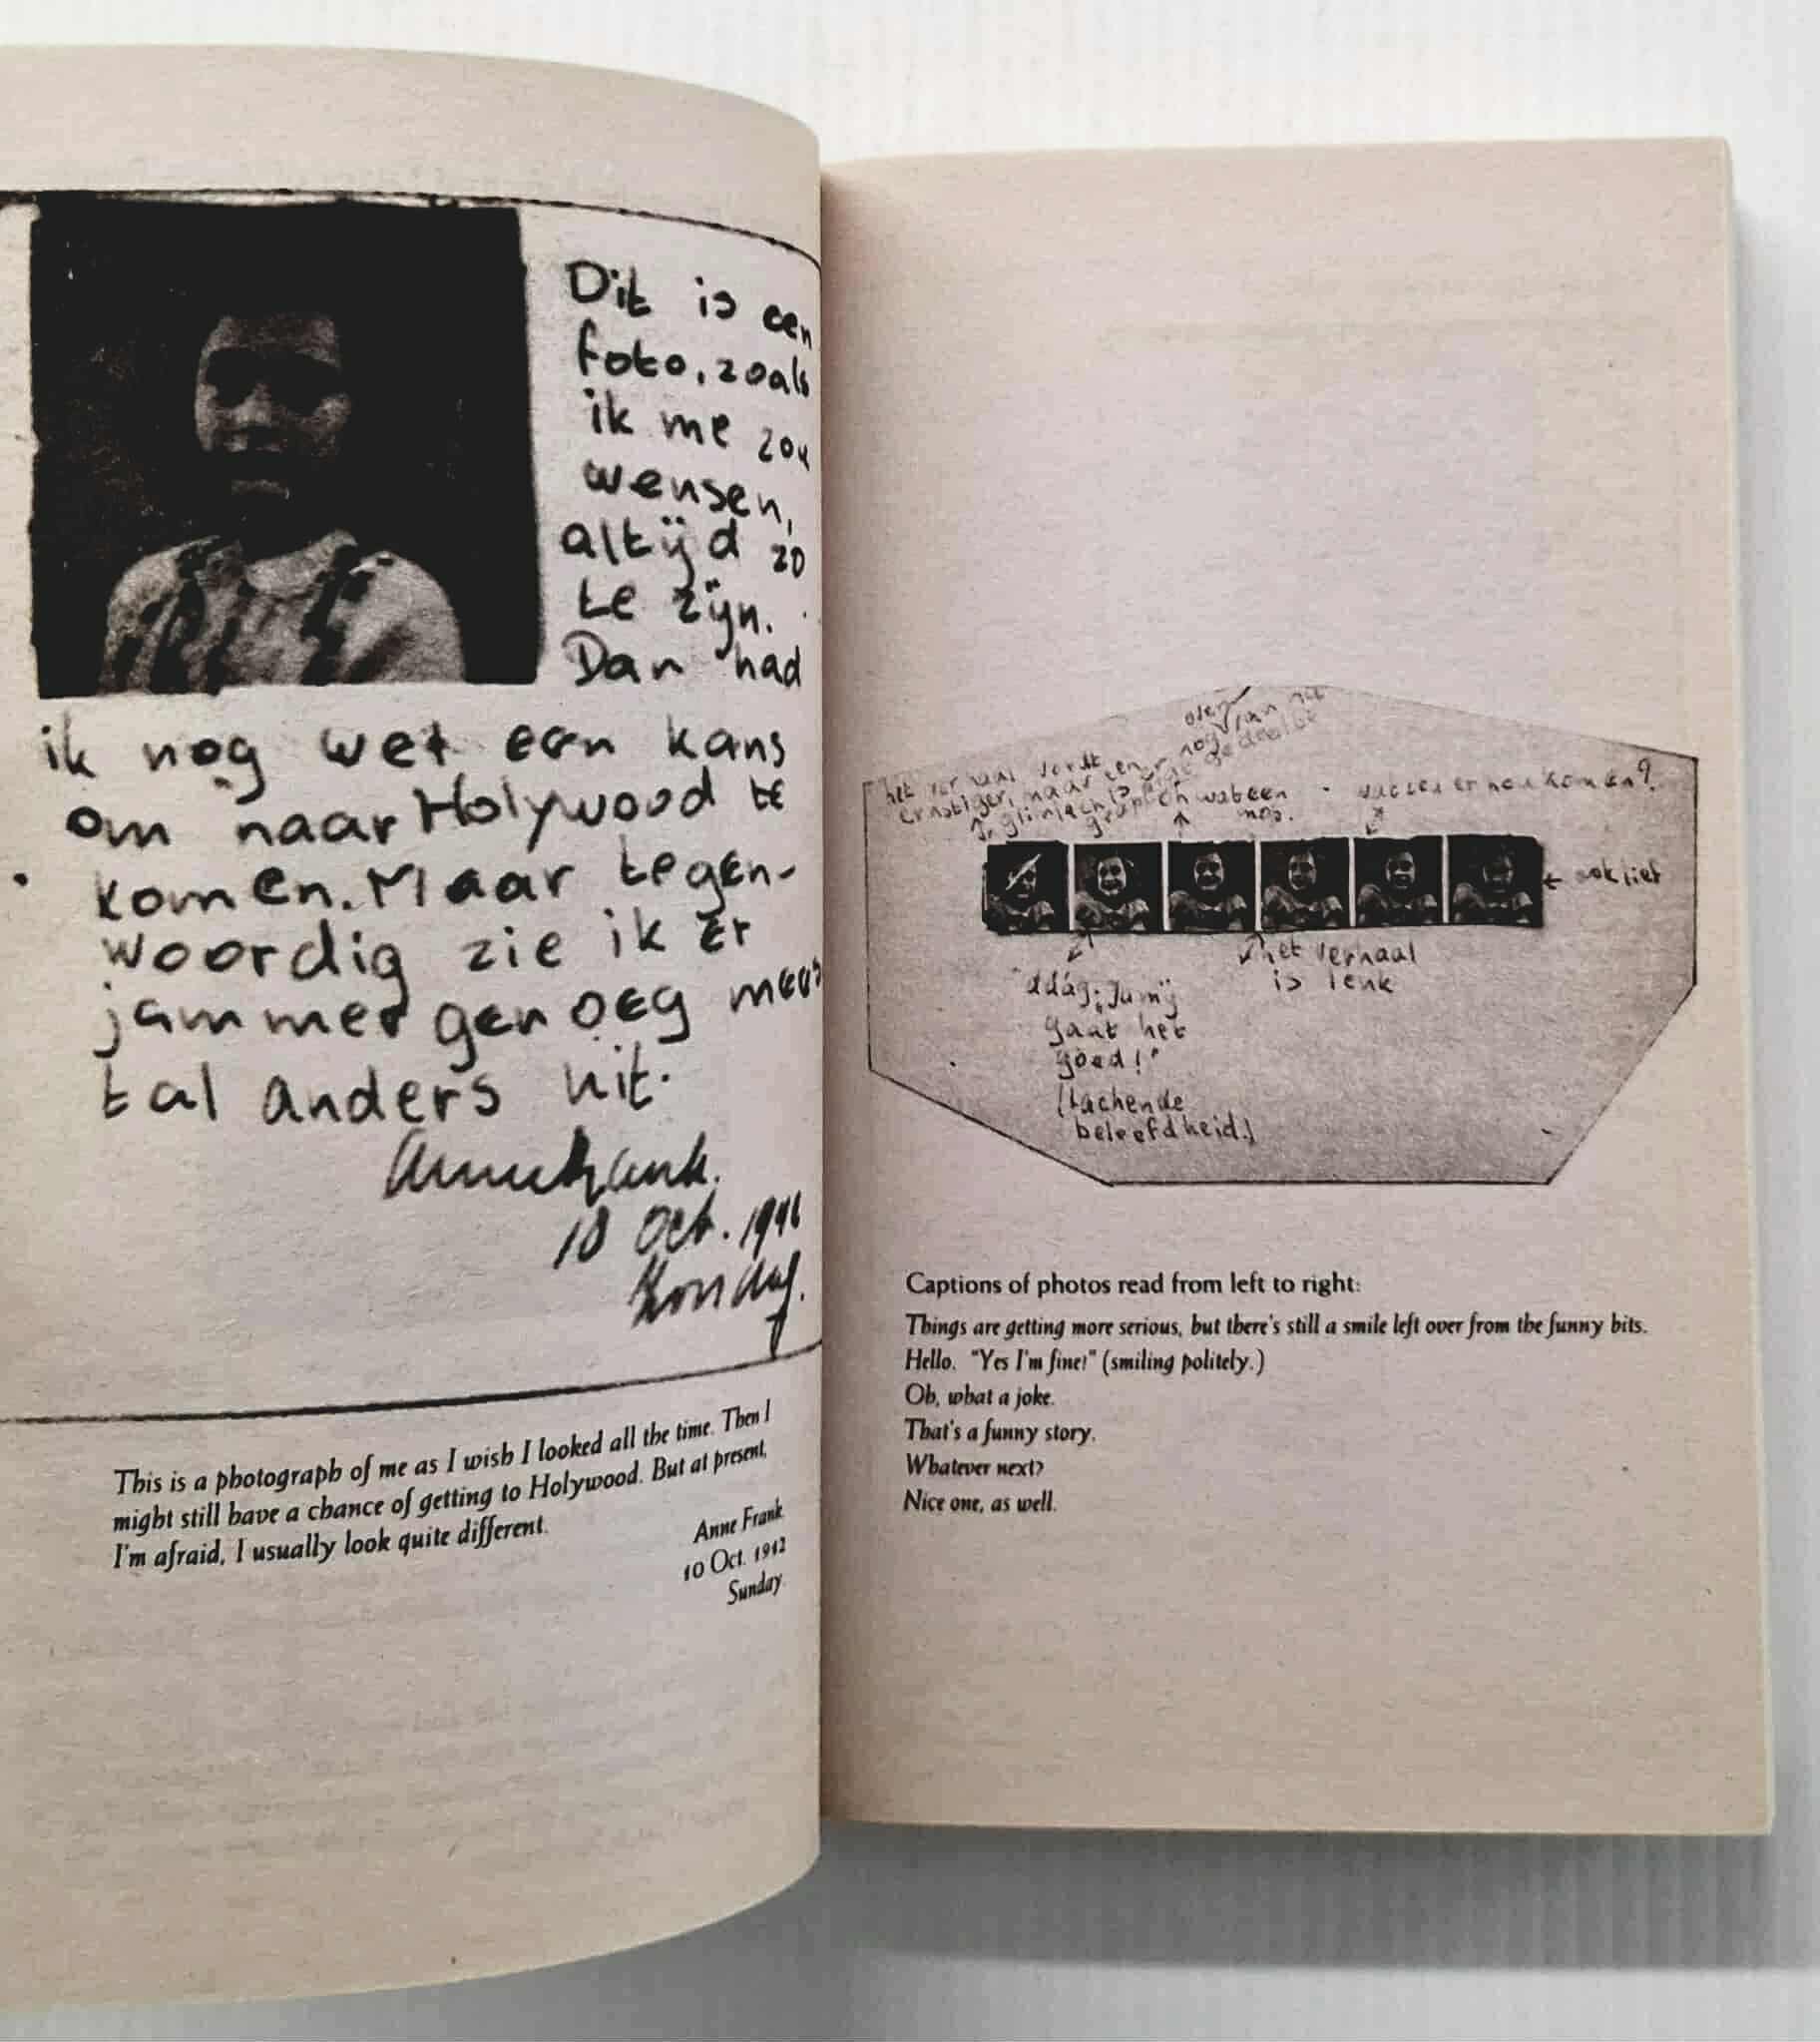 Dit is een
foto, zoals
ik me zou
wensen,
altijd zo
te zijn.
Dan had
ik nog wel een kans
om naar Holywood te
komen. Maar tegen-
woordig zie ik er
jammer genoeg mees
tal anders uit.
Annefrank.
18 Oct. 1942
Zondag.
This is a photograph of me as I wish I looked all the time. Then I
might still have a chance of getting to Holywood. But at present,
I'm afraid, I usually look quite different.
Anne Frank
10 Oct. 1942
Sunday
het verhaal wordt
ernstiger, maar er
nog van het
glimlach is
oh wat een
mop.
wat zal er nou komen?
ook lief
het verhaal
is leuk
"ddág; Ja mij
gaat het
goed!"
(Lachende
beleefdheid.)
Captions of photos read from left to right:
Things are getting more serious, but there's still a smile left over from the funny bits.
Hello. "Yes I'm fine!" (smiling politely.)
Oh, what a joke.
That's a funny story.
Whatever next?
Nice one, as well.